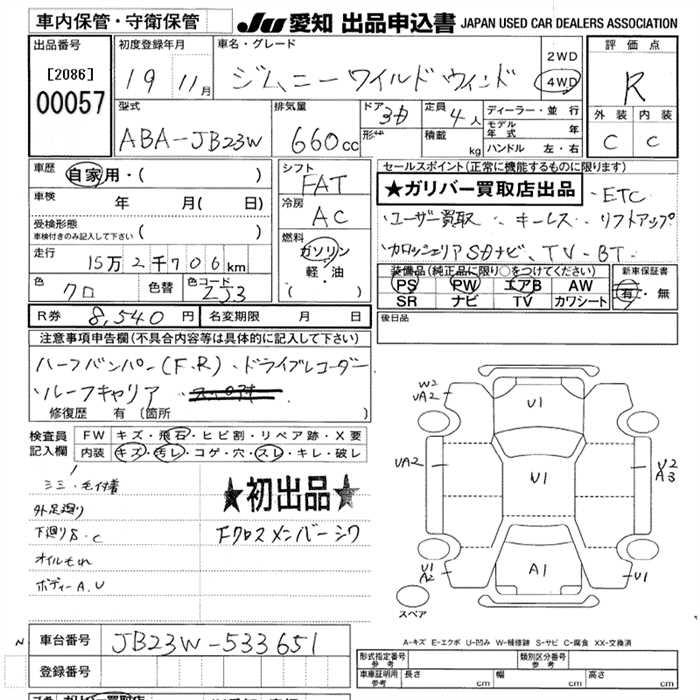 車内保管・守衛保管 JU 愛知 出品申込書 JAPAN USED CAR DEALERS ASSOCIATION
出品番号 初度登録年月 車名・グレード 評価点
[2086] 19 11月 ジムニー ワイルドウィンド 2WD 4WD R
00057
型式 排気量 ドア 定員 ディーラー・並行 外装 内装
ABA-JB23W 660cc 3ド 4人 モデル年式 年 C C
形状 積載 kg ハンドル 左・右
車歴 自家用・( ) シフト セールスポイント(正常に機能するものに限ります)
FAT ★ガリバー買取店出品 ・ETC
車検 年 月( 日) 冷房
AC ・ユーザー買取 ・キーレス ・リフトアップ
受検形態 車検付きのみ記入して下さい ( ) 燃料
走行 15万2千706km ガソリン ・カロッツェリアSDナビ、TV・BT
軽・油 装備品(純正品に限り○をつけてください) 新車保証書
色 クロ 色替 色コード ZJ3 ( ) PS PW エアB AW 有・無
SR ナビ TV カワシート
R券 8,540円 名変期限 月 日 後日品
注意事項申告欄(不具合内容等は具体的に記入して下さい)
ハーフバンパー(F,R)・ドライブレコーダー
・ルーフキャリア
修復歴 有 (箇所 )
検査員 FW キズ・飛石・ヒビ割・リペア跡・X要
記入欄 内装 キズ・汚レ・コゲ・穴・スレ・キレ・破レ
ミミ・毛付着 ★初出品★
外足廻り
下廻りS.C Fクロスメンバーシワ
オイルもれ
ボディーA.U
W2
UA2 U1
UA2 U1 U2
A3
U1
A2 A1 U1
スペア
A-キズ E-エクボ U-凹み W-補修跡 S-サビ C-腐食 XX-交換済
N 車台番号 JB23W-533651
登録番号 形式指定番号 参考 類別区分番号 参考
車庫証明用 参考 長さ cm 幅 cm 高さ cm
ガリバー買取店